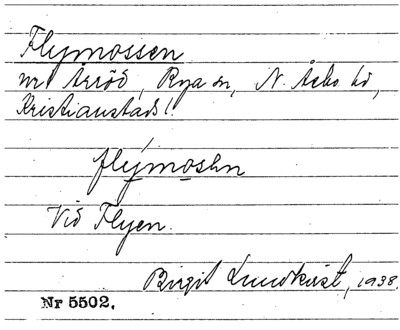 Flymossen
nr Årröd, Rya sn, N. Åsbo hd,
Kristianstads l.
flymosən
Vid Flyen.
Birgit Lundkvist, 1938.
Nr 5502.